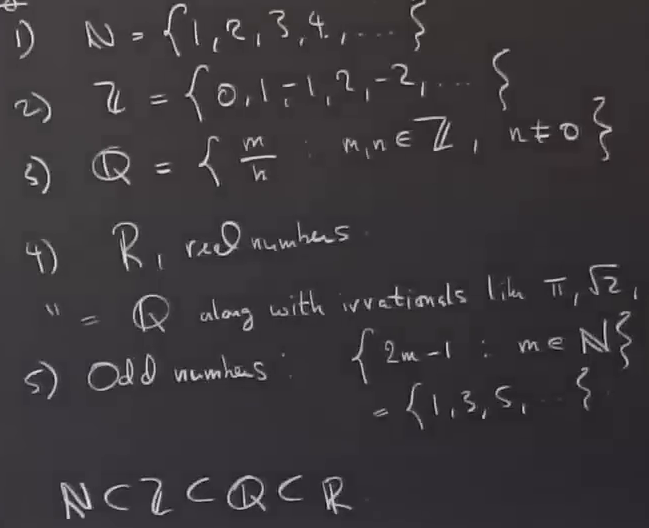 1) N = {1, 2, 3, 4, ... }
2) ℤ = {0, 1, -1, 2, -2, ... }
3) ℚ = { m/n : m, n ∈ ℤ, n ≠ 0 }
4) R, real numbers.
" = ℚ along with irrationals like π, √2,
5) Odd numbers: { 2m-1 : m ∈ ℕ}
= {1, 3, 5, ... }
N ⊂ ℤ ⊂ ℚ ⊂ R